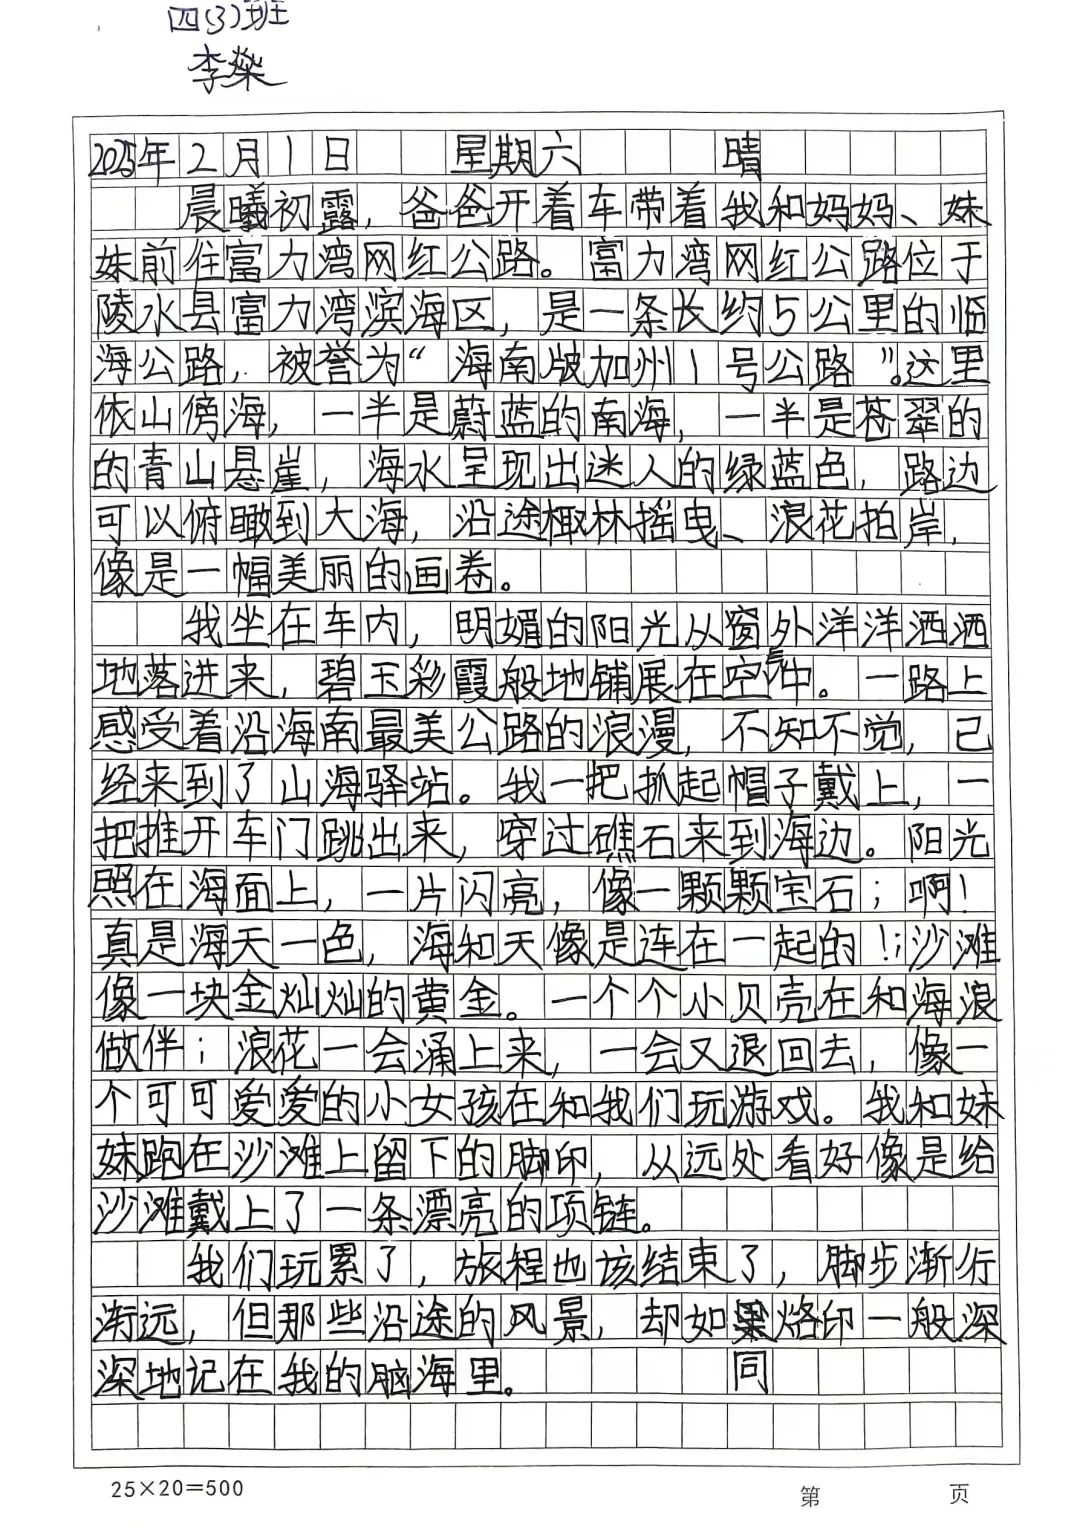 四(3)班
李燊
2025年2月1日 星期六 晴
晨曦初露，爸爸开着车带着我和妈妈、妹
妹前住富力湾网红公路。富力湾网红公路位于
陵水县富力湾滨海区，是一条长约5公里的临
海公路，被誉为“海南版加州1号公路”。这里
依山傍海，一半是蔚蓝的南海，一半是苍翠的
的青山悬崖，海水呈现出迷人的绿蓝色，路边
可以俯瞰到大海，沿途椰林摇曳、浪花拍岸，
像是一幅美丽的画卷。
我坐在车内，明媚的阳光从窗外洋洋洒洒
地落进来，碧玉彩霞般地铺展在空气中。一路上
感受着沿海南最美公路的浪漫，不知不觉，己
经来到了山海驿站。我一把抓起帽子戴上，一
把推开车门跳出来，穿过礁石来到海边。阳光
照在海面上，一片闪亮，像一颗颗宝石；啊！
真是海天一色，海和天像是连在一起的！；沙滩
像一块金灿灿的黄金。一个个小贝壳在和海浪
做伴；浪花一会涌上来，一会又退回去，像一
个可可爱爱的小女孩在和我们玩游戏。我和妹
妹跑在沙滩上留下的脚印，从远处看好像是给
沙滩戴上了一条漂亮的项链。
我们玩累了，旅程也该结束了，脚步渐行
渐远，但那些沿途的风景，却如果烙印一般深
深地记在我的脑海里。 同
25×20=500 第 页